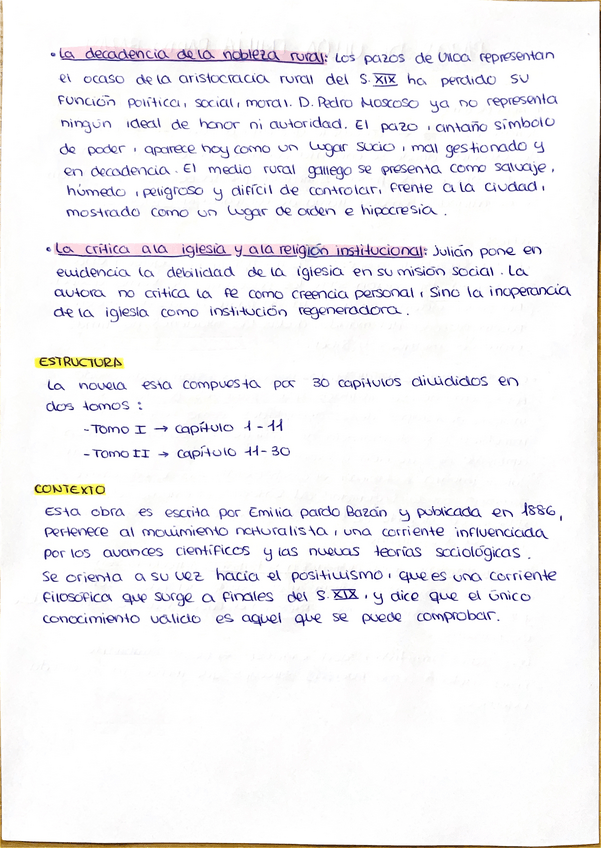 • La decadencia de la nobleza rural: Los pazos de Ulloa representan
el ocaso de la aristocracia rural del S. XIX ha perdido su
función política, social, moral. D. Pedro Moscoso ya no representa
ningún ideal de honor ni autoridad. El pazo, antaño símbolo
de poder, aparece hoy como un lugar sucio, mal gestionado y
en decadencia. El medio rural gallego se presenta como salvaje,
húmedo, peligroso y difícil de controlar, frente a la ciudad,
mostrado como un lugar de orden e hipocresía.
• La crítica a la iglesia y a la religión institucional: Julián pone en
evidencia la debilidad de la iglesia en su misión social. La
autora no critica la fe como creencia personal, sino la inoperancia
de la iglesia como institución regeneradora.
ESTRUCTURA
La novela esta compuesta por 30 capítulos divididos en
dos tomos:
- Tomo I → capítulo 1-11
- Tomo II → capítulo 11-30
CONTEXTO
Esta obra es escrita por Emilia pardo Bazán y publicada en 1886,
pertenece al movimiento naturalista, una corriente influenciada
por los avances científicos y las nuevas teorías sociológicas.
Se orienta a su vez hacia el positivismo, que es una corriente
filosófica que surge a finales del S. XIX, y dice que el único
conocimiento valido es aquel que se puede comprobar.